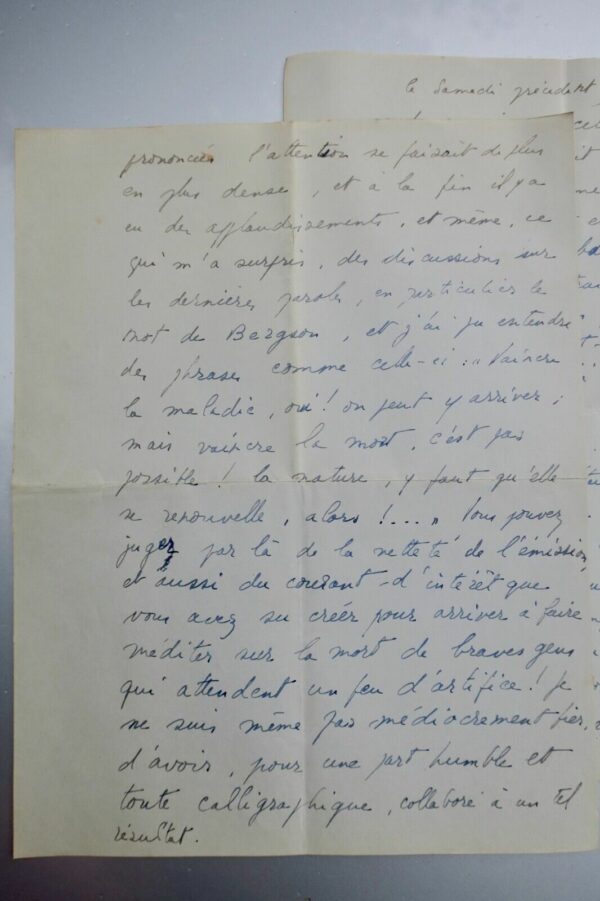 le Samedi précédent
prononcée l'attention se faisait de plus
en plus dense, et à la fin il y a
eu des applaudissements, et même, ce
qui m'a surpris, des discussions sur
les dernières paroles, en particulier le
mot de Bergson, et j'ai pu entendre
des phrases comme celle-ci : "Vaincre
la maladie, oui ! on peut y arriver ;
mais vaincre la mort, c'est pas
possible ! la nature, y faut qu'elle
se renouvelle, alors !...." Vous pouvez
juger par là de la netteté de l'émission
et aussi du courant d'intérêt que
vous avez su créer pour arriver à faire
méditer sur la mort de braves gens
qui attendent un feu d'artifice ! Je
ne suis même pas médiocrement fier,
d'avoir, pour une part humble et
toute calligraphique, collaboré à un tel
résultat.